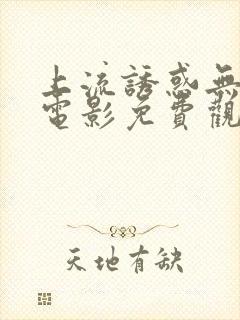 上流誘惑無
電影免費觀
天地有缺